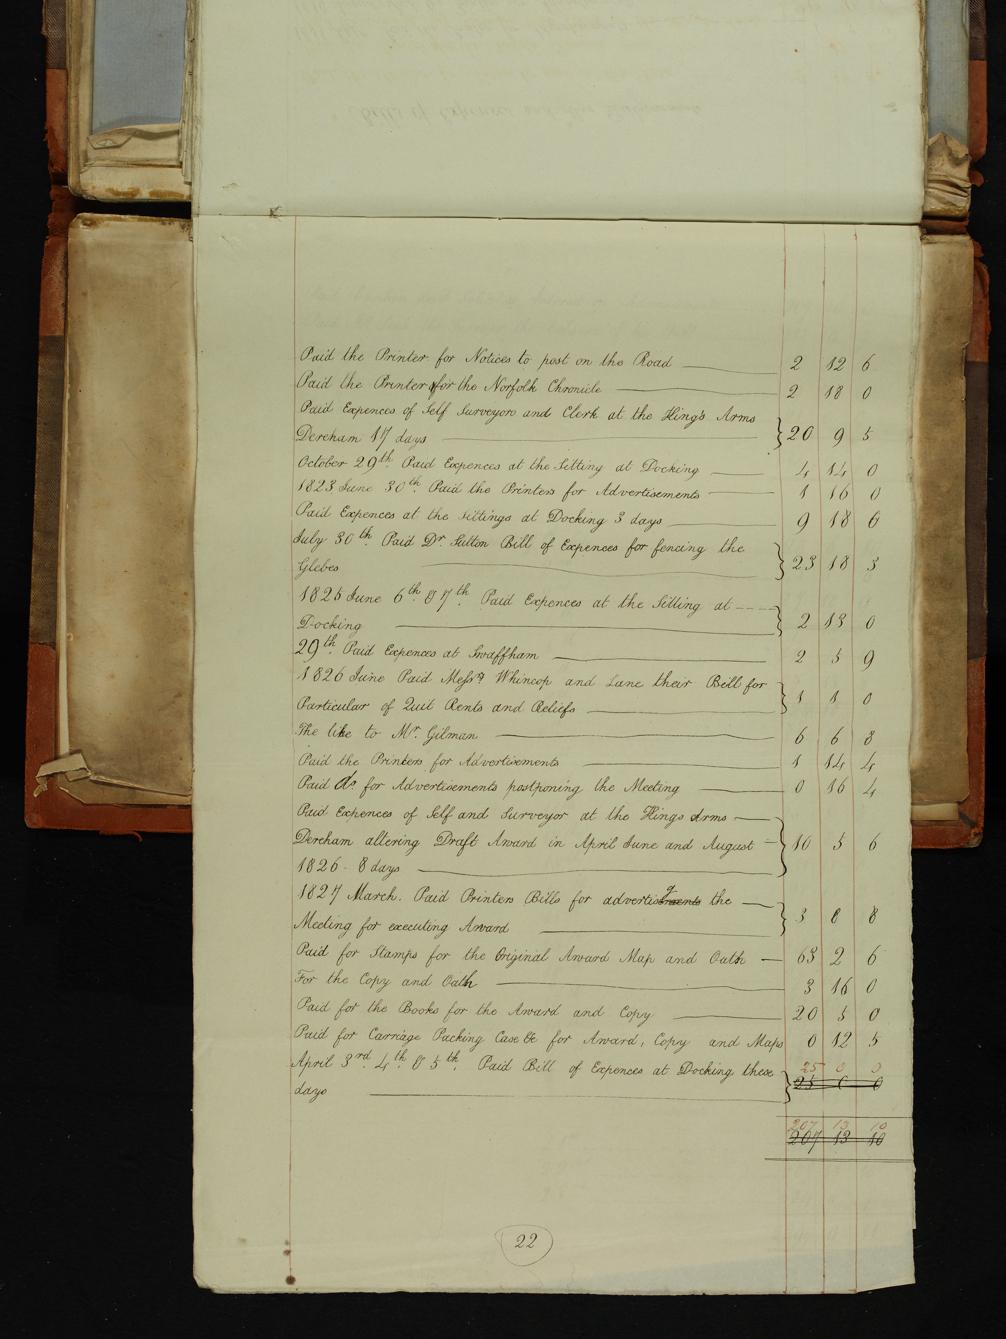 Paid the Printer for Notices to post on the Road 2 12 6
Paid the Printer for the Norfolk Chronicle 2 18 0
Paid Expences of Self Surveyors and Clerk at the King's Arms
Dereham 17 days 20 9 5
October 29th Paid Expences at the Sitting at Docking 4 14 0
1823 June 30th Paid the Printers for Advertisements 1 16 0
Paid Expences at the Sittings at Docking 3 days 9 18 6
July 30th Paid Dr Sutton Bill of Expences for fencing the
Glebes 23 18 3
1825 June 6th & 7th Paid Expences at the Sitting at
Docking 2 13 0
29th Paid Expences at Swaffham 2 5 9
1826 June Paid Messrs Whincop and Lane their Bill for
Particular of Quit Rents and Reliefs 1 1 0
The like to Mr Gilman 6 6 8
Paid the Printers for Advertisements 1 14 4
Paid Do for Advertisements postponing the Meeting 0 16 4
Paid Expences of Self and Surveyor at the Kings Arms
Dereham altering Draft Award in April June and August
1826 - 8 days 10 5 6
1827 March. Paid Printers Bills for advertising the
Meeting for executing Award 3 8 8
Paid for Stamps for the Original Award Map and Oath 63 2 6
For the Copy and Oath 3 16 0
Paid for the Books for the Award and Copy 20 5 0
Paid for Carriage Packing Case &c for Award, Copy and Maps 0 12 5
April 3rd 4th & 5th Paid Bill of Expences at Docking these
25 0 0
days 25 0 0
207 13 10
207 13 10
22